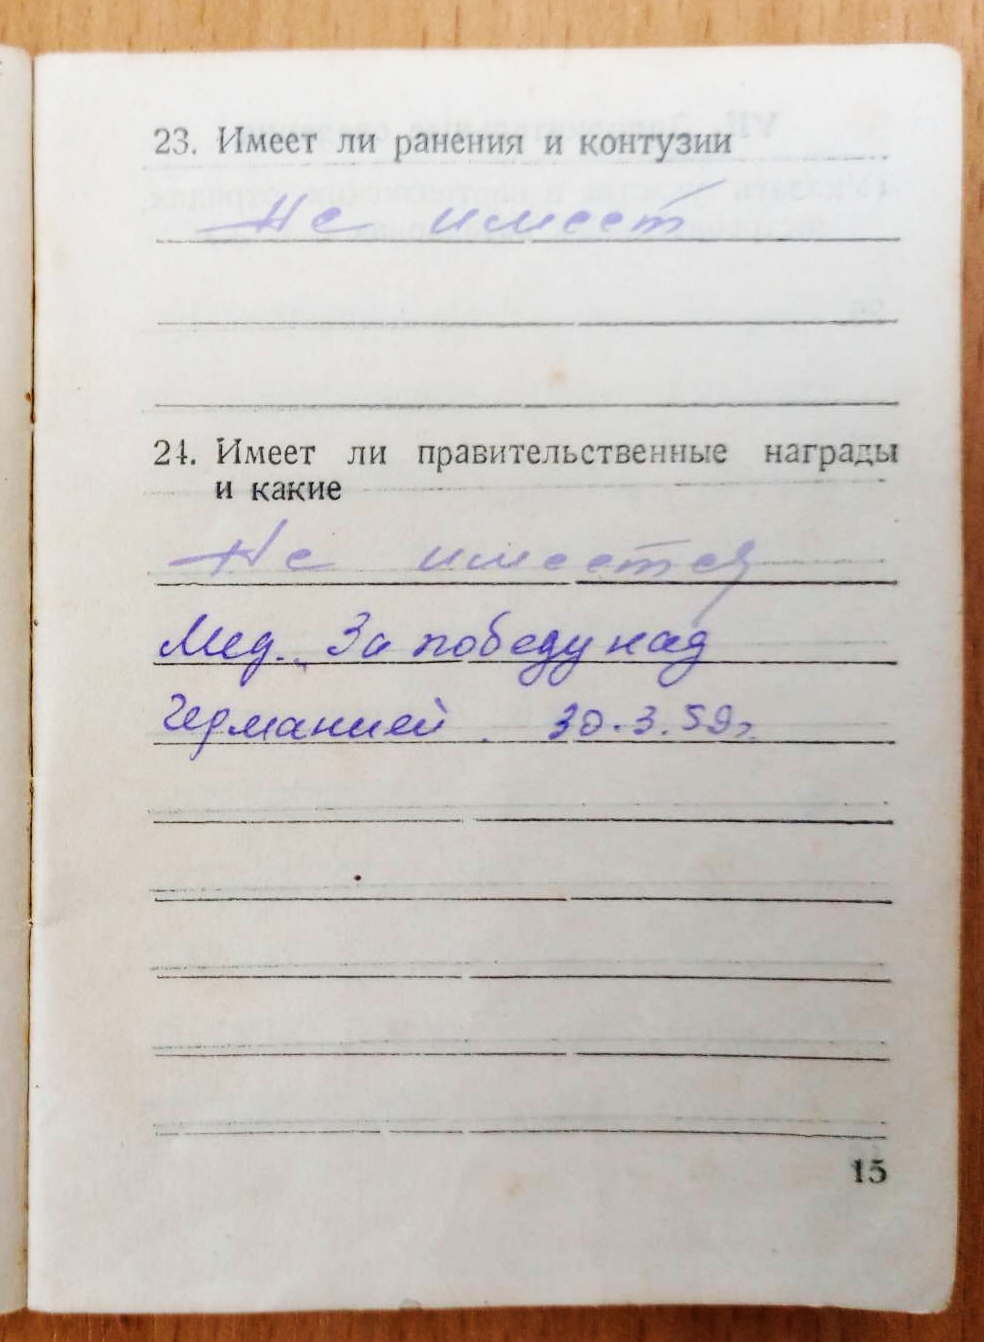 23. Имеет ли ранения и контузии
Не имеет
24. Имеет ли правительственные награды
и какие
Не имеется
Мед. „За победу над
Германией 30.3.59г.
15